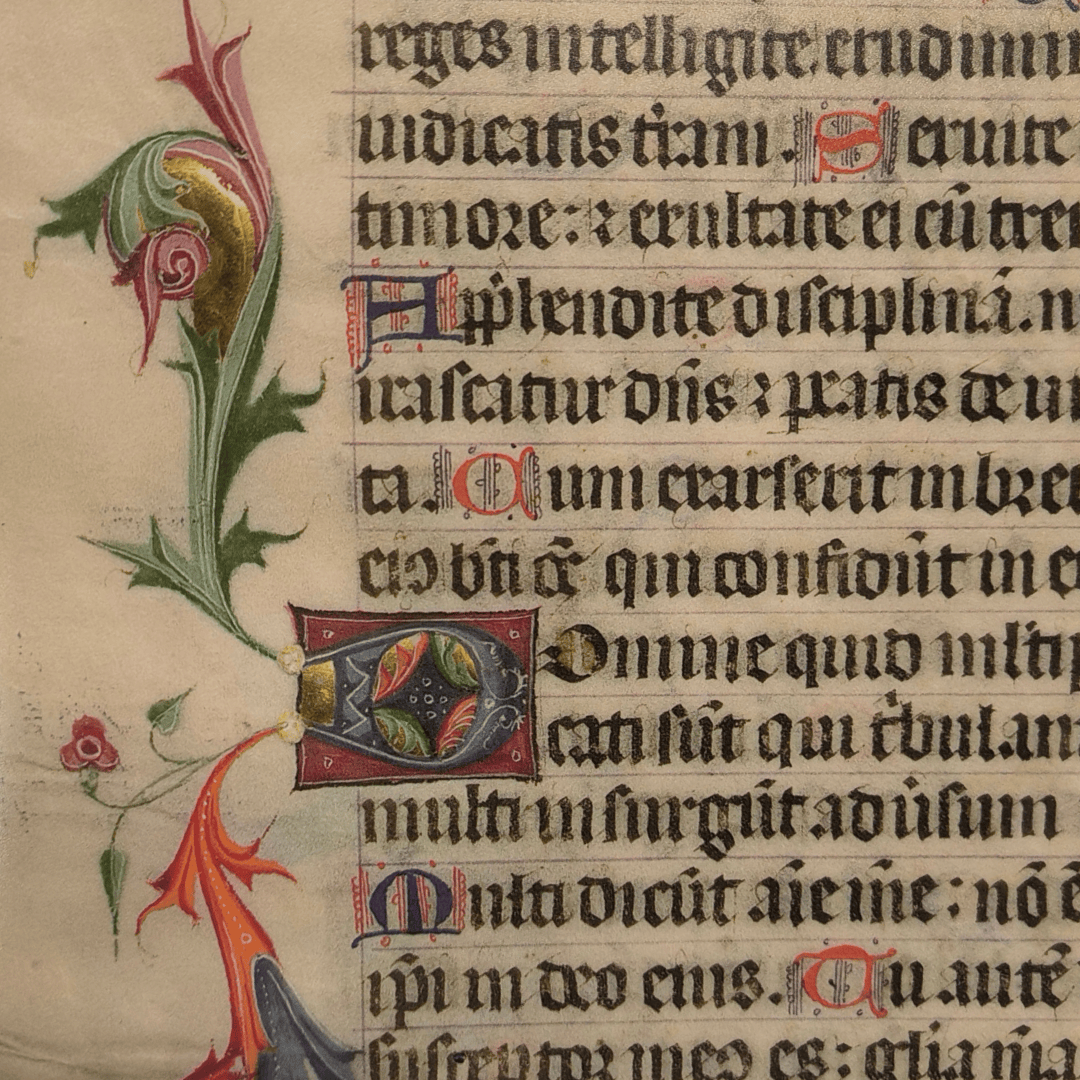 reges intelligite erudimini
iudicatis t̄ram. Seruite
timore: ⁊ exultate ei cū tre
App̄hendite disciplinā. n
irascatur dn̄s ⁊ peatis de ui
ta. Cum exarserit in breui
eiꝰ bt̄i oēs qui confidūt in eo
Domine quid ml̄tip
cati sūt qui t̄bulan
multi insurgūt aduūsum
Multi dicūt aīe mē: nō ē
ip̄i in deo eius. Tu autē
susceptor meꝰ es: gl̄ia m̄a